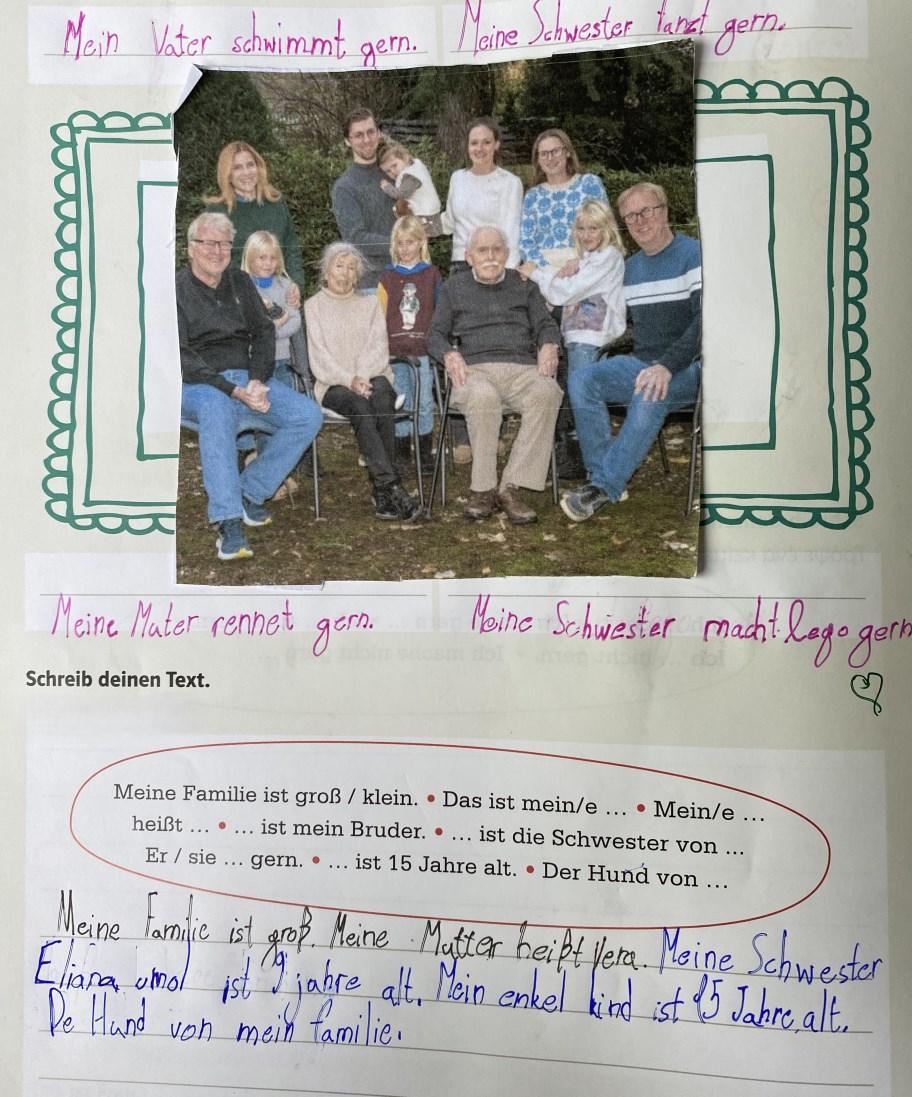 Mein Vater schwimmt gern. Meine Schwester tanzt gern.
Meine Mater rennet gern. Meine Schwiester macht Lego gern
Schreib deinen Text.
Meine Familie ist groß / klein. • Das ist mein/e ... • Mein/e ...
heißt ... • ... ist mein Bruder. • ... ist die Schwester von ...
Er / sie ... gern. • ... ist 15 Jahre alt. • Der Hund von ...
Meine Familie ist groß. Meine Mutter heißt Vera. Meine Schwester
Eliana ist 9 jahre alt. Mein enkel kind ist 15 Jahre alt.
De Hund von mein familie.